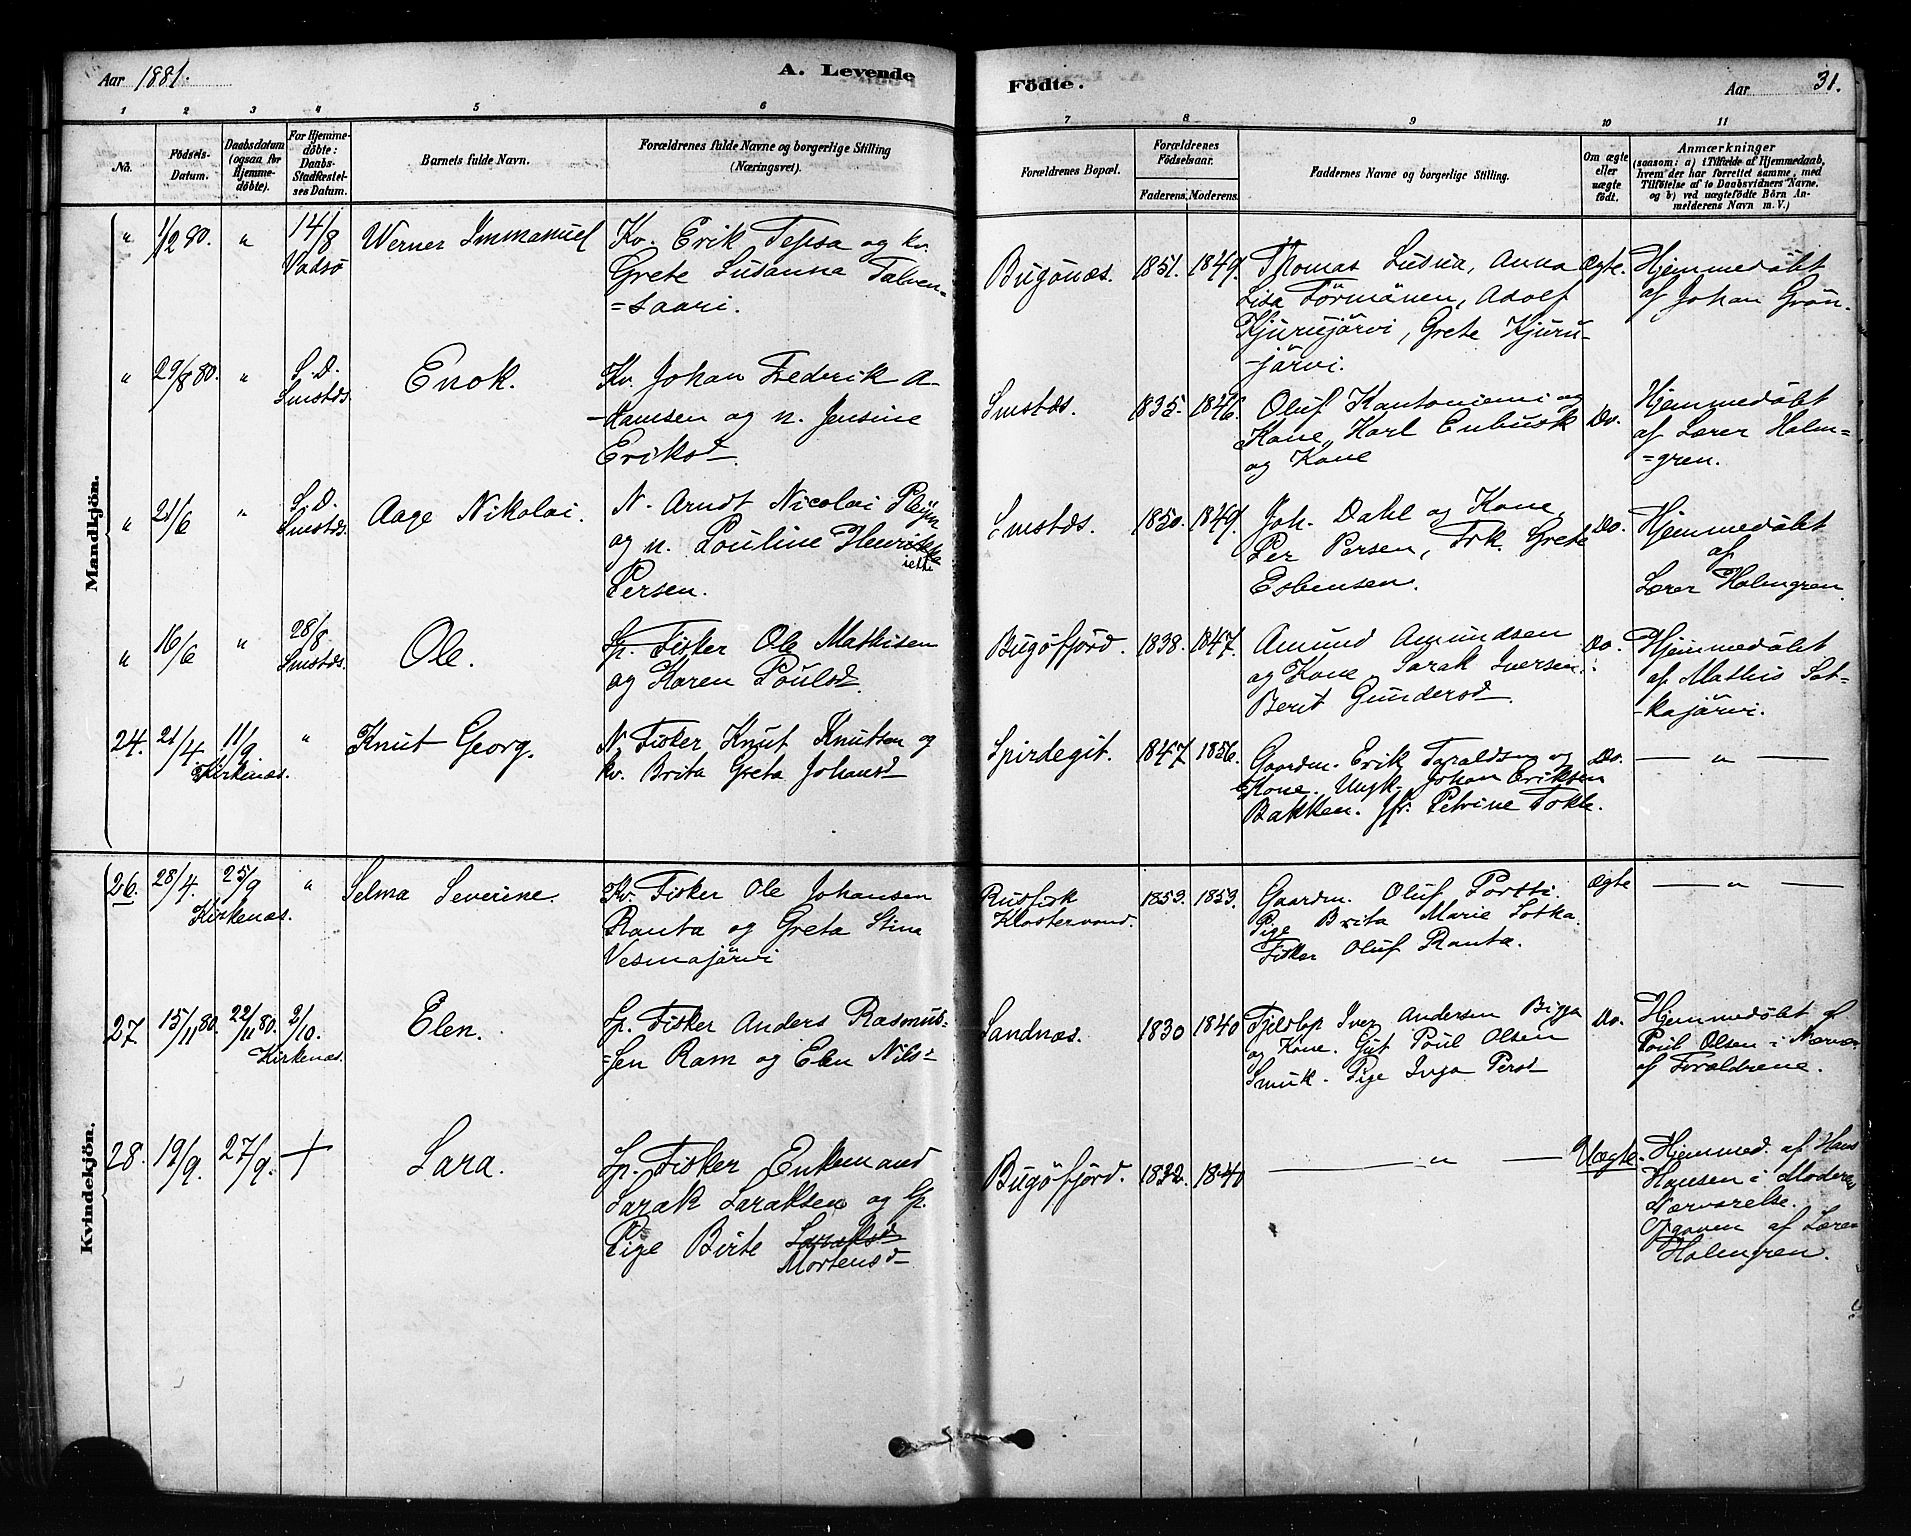 Aar 1881.
A. Levende
Födte.
Aar 31.
1 2 3 4 5 6 7 8 9 10 11
No.
Födsels-Datum.
Daabsdatum (ogsaa for Hjemmedöbte).
For Hjemmedöbte: Daabs-Stadfæstelses Datum.
Barnets fulde Navn.
Forældrenes fulde Navne og borgerlige Stilling (Næringsvei).
Forældrenes Bopæl.
Forældrenes Födselsaar.
Faderens. Moderens.
Faddernes Navne og borgerlige Stilling.
Om ægte eller uægte födt.
Anmærkninger
(saasom: a) i Tilfælde af Hjemmedaab, hvem der har forrettet samme, med Tilföielse af to Daabsvidners Navne. og b) ved uægtefödte Börn Anmelderens Navn m. V.)
Mandkjön.
" 1/2 80. " 14/8 Vadsö
Werner Immanuel
Kv. Erik Tepsa og kv.
Grete Susanna Talven-
=saari.
Bugönæs. 1851. 1849.
Thomas Anna
Lisa Törmänen, Adolf
Kjurujärvi, Grete Kjuru-
-järvi.
Ægte.
Hjemmedöbt
af Johan Grön-
" 29/8 80. " S. D. Smstds.
Enok.
Kv. Johan Frederik A-
-damsen og n. Jensine
Eriksd.
Smstds. 1835. 1846.
Oluf Kantoniemi og
Kone, Karl Enbusk
og Kone
Do.
Hjemmedöbt
af Lærer Holm=
=gren.
" 21/6 " S. D. Smstds.
Aage Nikolai.
N. Arndt Nicolai Pleym
og n. Pouline
Persen.
Smstds. 1850. 1849.
Joh. Dahl og Kone,
Per Persen, Frk. Grete
Esbensen.
Do.
Hjemmedöbt
af
Lærer Holmgren.
" 16/6 " 28/8 Smstds.
Ole.
Lp. Fisker Ole Mathisen
og Karen Poulsd.
Bugöfjord. 1838. 1847.
Amund Amundsen
og Kone, Sarak Iversen
Berit Gundersd
Do.
Hjemmedöbt
af Mathis Sot-
-kajärvi.
24. 21/4 11/9 Kirkenæs. "
Knut Georg.
N. Fisker Knut Knutsen og
kv. Brita Greta Johansd
Spirdegit. 1847 1856.
Gaardm. Erik Taraldsen og
Kone. Ungk. Johan Eriksen
Bakken. Jfr. Petrine Tokle.
Do.
— " —
Kvindekjön.
26. 28/4. 25/9 Kirkenæs. "
Selma Severine.
Kv. Fisker Ole Johansen
Ranta og Greta Stina
Vesmajärvi
Klostervand. 1853. 1853.
Gaardm. Oluf Porsti
Pige Brita Marie Sotka.
Fisker Oluf Ranta.
Ægte
— " —
27 15/11 80. 22/11 80. 2/10. Kirkenæs.
Elen.
Lp. Fisker Anders Rasmus=
=sen Ram og Elen Nilsd
Sandnæs. 1830 1840
Fjeldlap Iver Andersen Bigga
og Kone. Gut Poul Olsen
Smuk. Pige Inga Persd
Do.
Hjemmedöbt af
Poul Olsen i Nærvær
af Forældrene.
28. 19/9. 27/9. +
Sara.
Lp. Fisker Enkemand
Sarak Saraksen og lp.
Pige Birte Saraksd
Mortensd
Bugöfjord. 1832. 1840
— " —
Uægte.
Hjemmed. af Hans
Hansen i Moderens
Nærværelse.
Opgaven af Lærer
Holmgren.